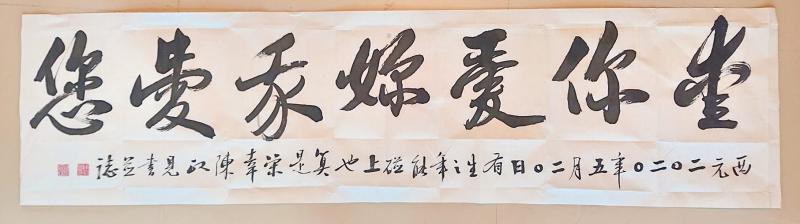 愛你愛妳我愛您
西元二〇二〇年五月二〇日有生之年能碰上也算是榮幸陳政見書並誌